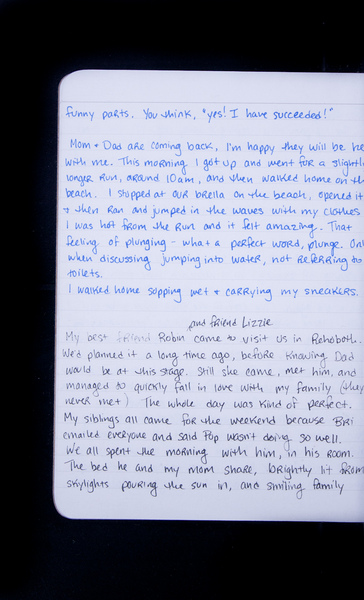 funny parts. You think, "yes! I have succeeded!"
Mom + Dad are coming back, I'm happy they will be he
with me. This morning I got up and went for a slightl
longer run, around 10am, and then walked home on th
beach. I stopped at our brella on the beach, opened it
+ then ran and jumped in the waves with my clothes
I was hot from the run and it felt amazing. That
feeling of plunging - what a perfect word, plunge. On
when discussing jumping into water, not referring to
toilets.
I walked home sopping wet + carrying my sneakers.
and friend Lizzie
My best friend Robin came to visit us in Rehoboth.
We'd planned it a long time ago, before knowing Dad
would be at this stage. Still she came, met him, and
managed to quickly fall in love with my family (they
never met) The whole day was kind of perfect.
My siblings all came for the weekend because Bri
emailed everyone and said Pop wasn't doing so well.
We all spent the morning with him, in his room.
The bed he and my mom share, brightly lit from
skylights pouring the sun in, and smiling family